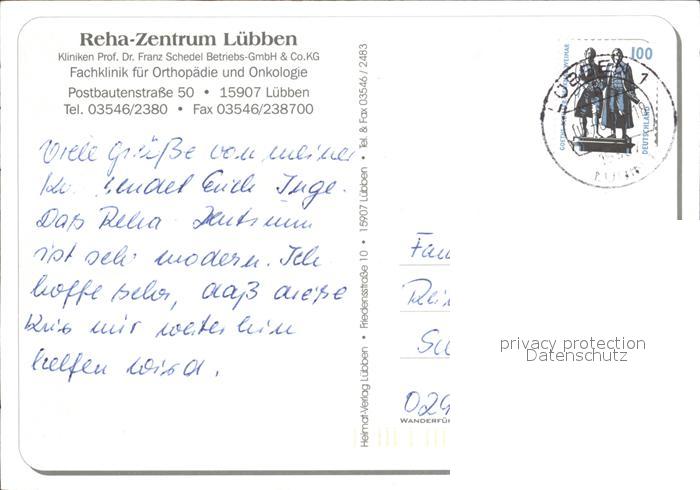 Reha-Zentrum Lübben
Kliniken Prof. Dr. Franz Schedel Betriebs-GmbH & Co.KG
Fachklinik für Orthopädie und Onkologie
Postbautenstraße 50 • 15907 Lübben
Tel. 03546/2380 • Fax 03546/238700
Viele Grüße von meiner
Kur sendet Euch Inge.
Das Reha-Zentrum
ist sehr modern. Ich
hoffe sehr, daß diese
Kur mir weiterhin
helfen wird.
Heimat-Verlag Lübben • Friedensstraße 10 • 15907 Lübben • Tel. & Fax 03546/2483
100
DEUTSCHLAND
LÜBBEN 1
Fam
Rei
Su
029
WANDERFÜ
privacy protection
Datenschutz